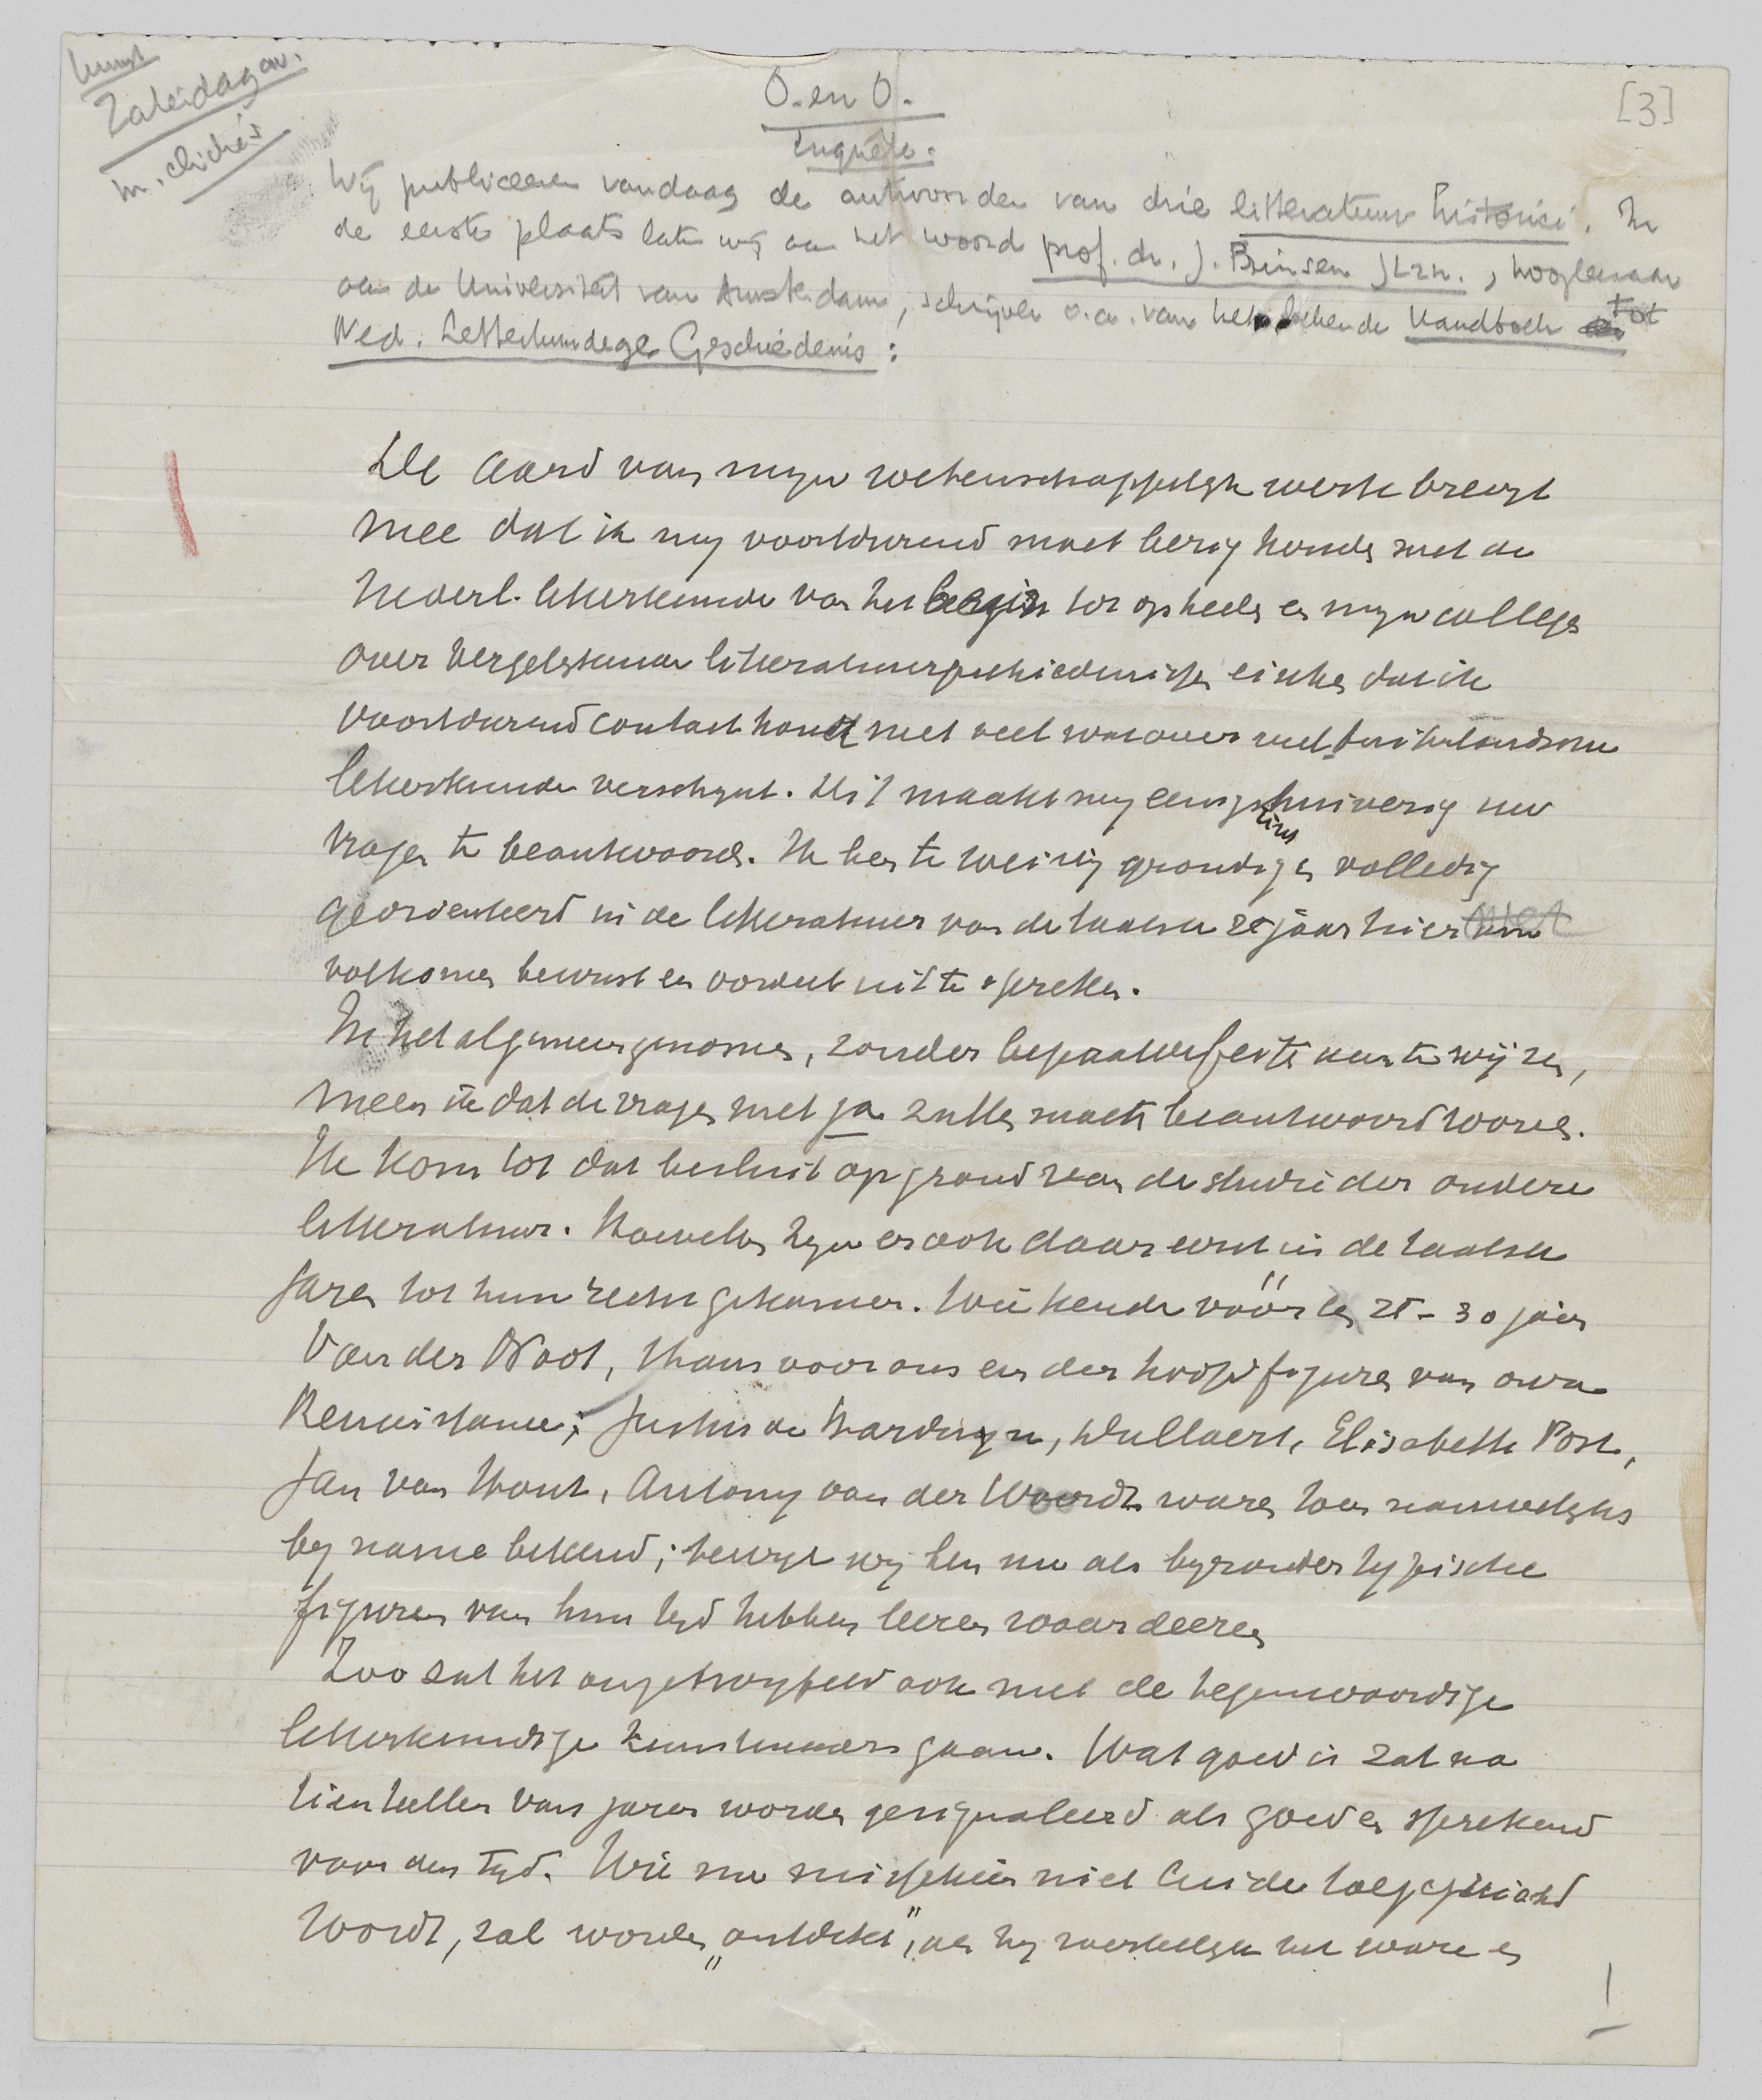 kunst
Zaterdag av.
m. cliché's
[3]
O. en O.
Enquête.
Wij publiceeren vandaag de antwoorden van drie litteratuur historici. In
de eerste plaats laten wij aan het woord prof. dr. J. Prinsen JLzn., hoogleeraar
aan de Universiteit van Amsterdam, schrijver o.a. van het bekende Handboek tot
Ned. Letterkundige Geschiedenis:
De aard van mijn wetenschappelijk werk brengt
mee dat ik mij voortdurend moet bezig houden met de
Nederl. letterkunde van het begin tot op heden en mijn colleges
over vergelijkende litteratuurgeschiedenis eischen dat ik
voortdurend contact houd met veel wat over buitenlandsche
letterkunde verschijnt. Dit maakt mij eenigszins huiverig uw
vragen te beantwoorden. Ik ben te weinig grondig en volledig
georienteerd in de litteratuur van de laatste 25 jaar hier om
volkomen bewust een oordeel uit te spreken.
In het algemeen genomen, zonder bepaalde feiten aan te wijzen,
meen ik dat de vragen met ja zullen moeten beantwoord worden.
Ik kom tot dat besluit op grond van de studie der oudere
litteratuur. Hoevelen zijn er ook daar eerst in de laatste
jaren tot hun recht gekomen. Wie kende vóór een 25-30 jaar
Van der Noot, thans voor ons een der hoofdfiguren van onze
Renaissance; Justus de Harduyn, Dullaert, Elisabeth Post,
Jan van Hout, Antony van der Woordt waren toen nauwelijks
bij name bekend; terwijl wij hen nu als bijzonder typische
figuren van hun tijd hebben leeren waardeeren
Zoo zal het ongetwijfeld ook met de tegenwoordige
letterkundige kunstenaars gaan. Wat goed is zal na
tientallen van jaren worden gesignaleerd als goed en sprekend
voor den tijd. Wie nu misschien niet luide toegejuicht
wordt, zal worden „ontdekt", als hij werkelijk het ware en
1